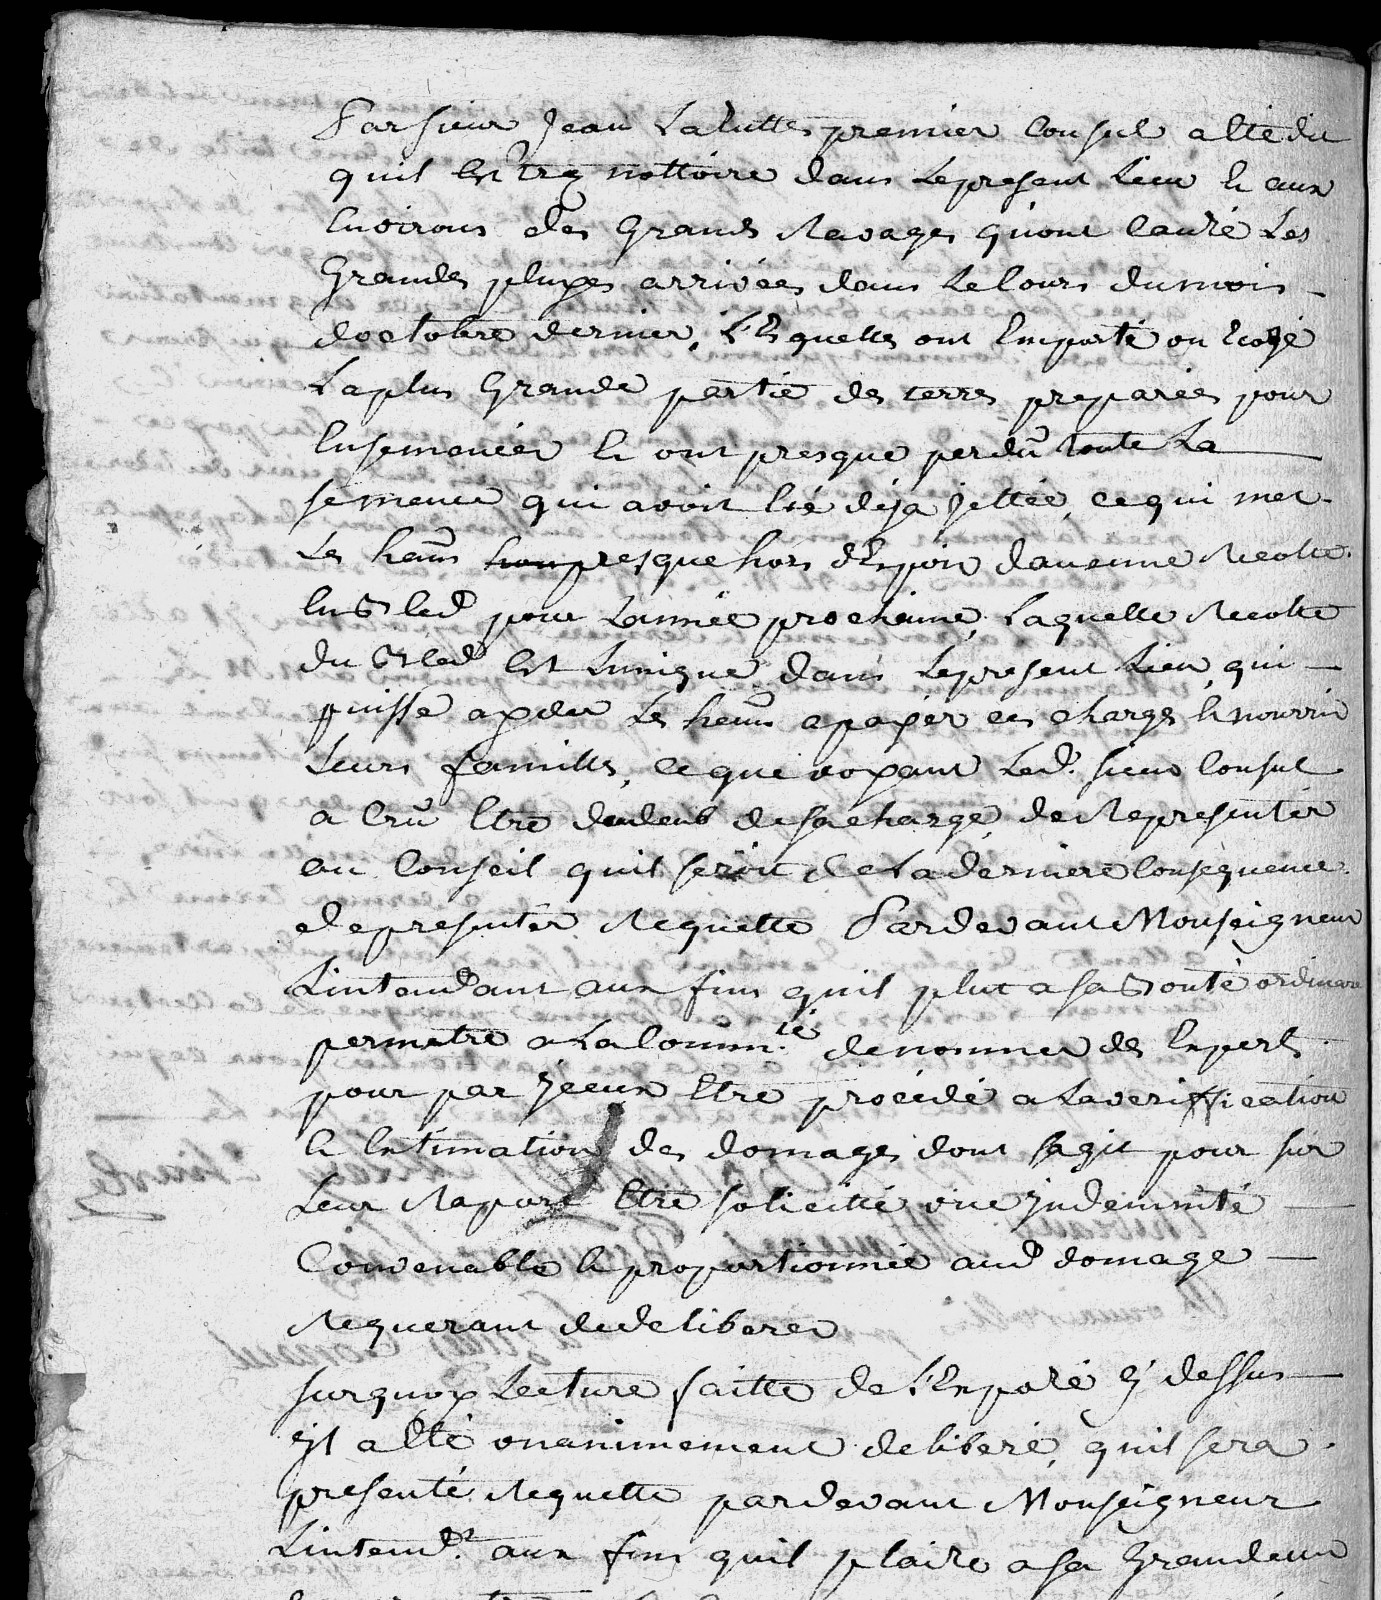 Par sieur Jean Lalitte premier Consul a eté dit
quil est trez nottoire dans Le present Lieu et aux
Environs des Grands Ravages qu'ont causé Les
Grandes pluyes arrivées dans Le Cours du mois
doctobre dernier, Lesquelles ont Emporté ou
La plus Grande partie des terres preparées pour
Ensemencer et ont presque perdu toute La
semence qui avoit été deja jettée, ce qui met
Les hans presque hors d'Espoir daucune Recolte
En Bled pour Lannée prochaine, Laquelle Recolte
du Bled est Lunique dans Le present Lieu, qui
puisse ayder Les hans a payer ces charges et nourrir
Leurs familles, ce que voyant Led. sieur Consul
a Cru Etre du deub de sa charge, de Representer
au Conseil quil seroit de La derniere Consequence
de presenter Requette Pardevant Monseigneur
Lintendant aux fins quil plut a sa Bonté ordinaire
permetre a La Comm.té de nommer des Experts
pour par yceux Etre procédé a La veriffication
et Estimation des domages dont sagit pour sur
Leur Raport Etre solicitté une indemnité
Convenable et proportionnée aud domage
Requerant de deliberer
sur quoy Lecture faitte de L'Exposé cy dessus
yl a eté unanimement deliberé, quil sera
presenté Requette pardevant Monseigneur
Lintend.t aux fins quil plaise a sa Grandeur